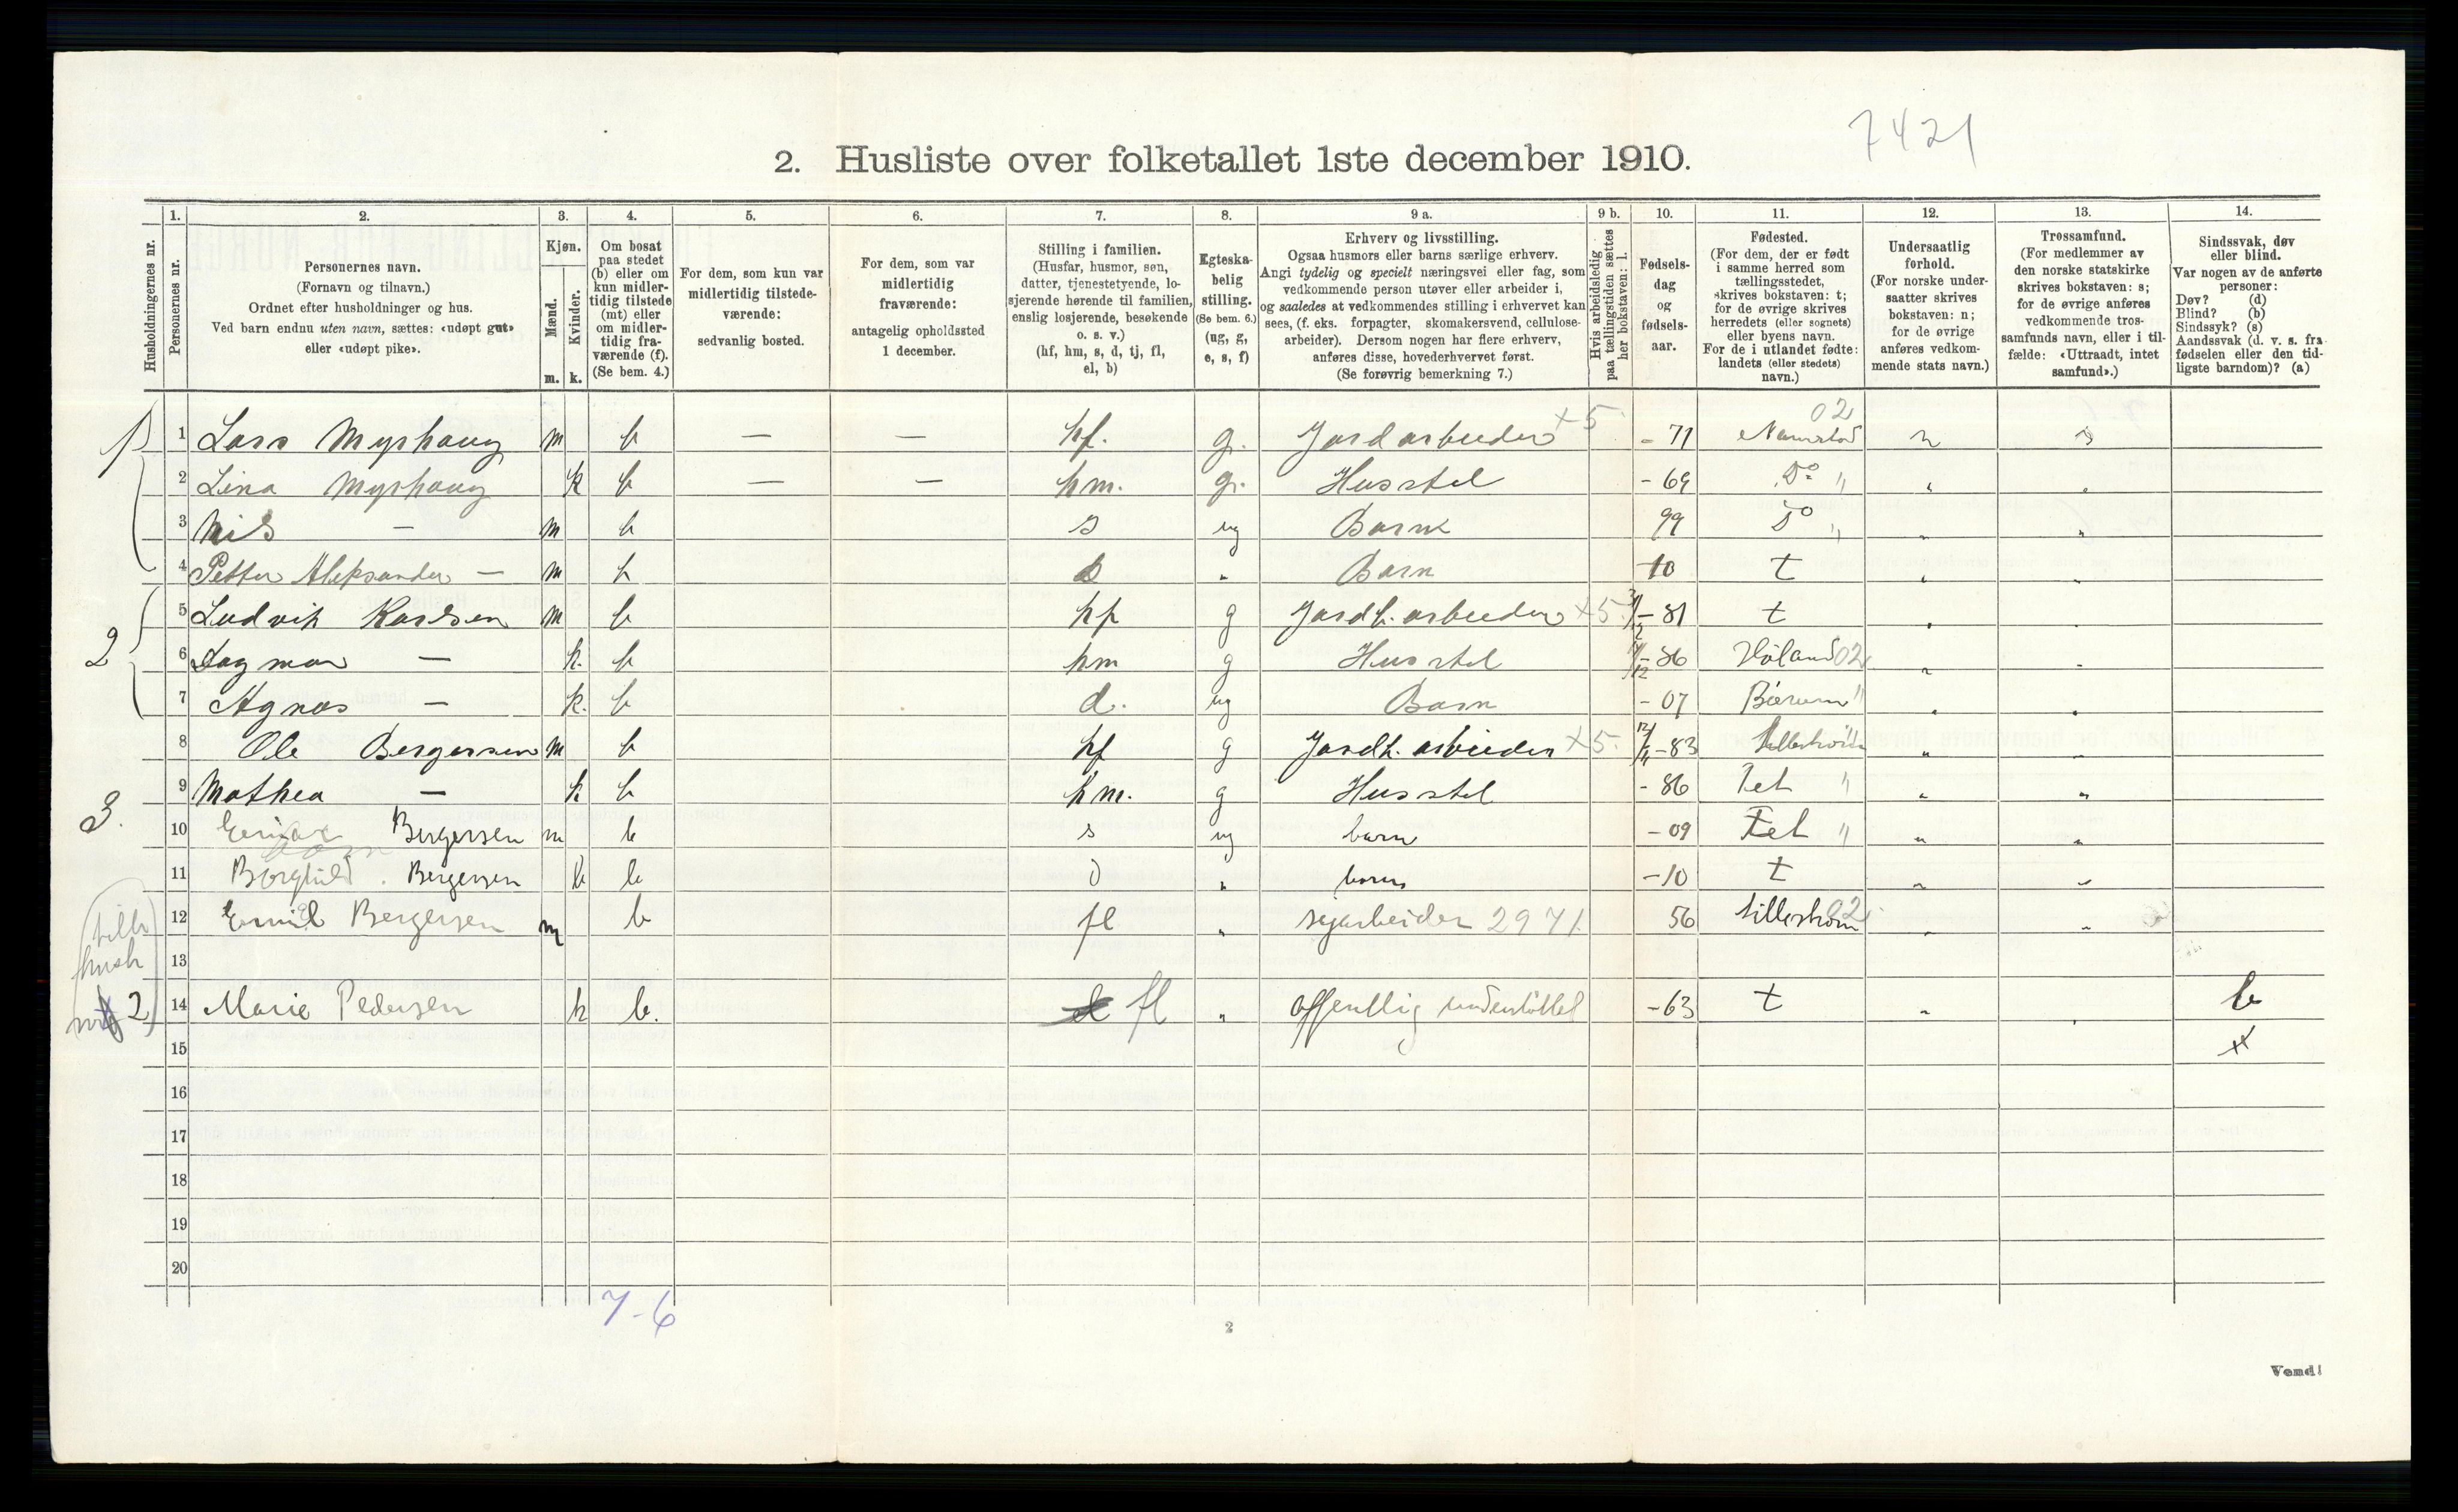 7421
2. Husliste over folketallet 1ste december 1910.
Husholdningernes nr.
1. Personernes nr.
2. Personernes navn. (Fornavn og tilnavn.) Ordnet efter husholdninger og hus. Ved barn endnu uten navn, sættes: «udøpt gut» eller «udøpt pike».
3. Kjøn. Mænd. m. Kvinder. k.
4. Om bosat paa stedet (b) eller om kun midlertidig tilstede (mt) eller om midlertidig fraværende (f). (Se bem. 4.)
5. For dem, som kun var midlertidig tilstedeværende: sedvanlig bosted.
6. For dem, som var midlertidig fraværende: antagelig opholdssted 1 december.
7. Stilling i familien. (Husfar, husmor, søn, datter, tjenestetyende, losjerende hørende til familien, enslig losjerende, besøkende o. s. v.) (hf, hm, s, d, tj, fl, el, b)
8. Egteskabelig stilling. (Se bem. 6.) (ug, g, e, s, f)
9 a. Erhverv og livsstilling. Ogsaa husmors eller barns særlige erhverv. Angi tydelig og specielt næringsvei eller fag, som vedkommende person utøver eller arbeider i, og saaledes at vedkommendes stilling i erhvervet kan sees, (f. eks. forpagter, skomakersvend, cellulosearbeider). Dersom nogen har flere erhverv, anføres disse, hovederhvervet først. (Se forøvrig bemerkning 7.)
9 b. Hvis arbeidsledig paa tællingstiden sættes her bokstaven: l.
10. Fødselsdag og fødselsaar.
11. Fødested. (For dem, der er født i samme herred som tællingsstedet, skrives bokstaven: t; for de øvrige skrives herredets (eller sognets) eller byens navn. For de i utlandet fødte: landets (eller stedets) navn.)
12. Undersaatlig forhold. (For norske undersaatter skrives bokstaven: n; for de øvrige anføres vedkommende stats navn.)
13. Trossamfund. (For medlemmer av den norske statskirke skrives bokstaven: s; for de øvrige anføres vedkommende trossamfunds navn, eller i tilfælde: «Uttraadt, intet samfund».)
14. Sindssvak, døv eller blind. Var nogen av de anførte personer: Døv? (d) Blind? (b) Sindssyk? (s) Aandssvak (d. v. s. fra fødselen eller den tidligste barndom)? (a)
1 1 Lars Myshaug m b — — hf. g. Jordarbeider ×5 - 71 02 n s
2 Lina Myshaug k b — — hm. g. Husstel - 69 Do "
3 Nils — m b s ug Barn 99 Do "
4 Petter Aleksander — m b s " Barn 10 t
2 5 Ludvik Karlsen m b hf g Jordb. arbeider ×5 - 81 t
6 Dagmar — k. b hm g Husstel - 86 Høland 02
7 Agnes — k. b d. ug Barn - 07 Bærum "
8 Ole Bergersen m b hf g Jordb. arbeider ×5. - 83 Lillestrøm
3. 9 Mathea — k b hm. g Husstel - 86 Fet "
10 Bergersen m b s ug barn - 09 Fet "
11 Borghild Bergersen k b d " barn - 10 t
12 Emil Bergersen m b fl " sagarbeider 2971 56 Lillestrøm 02
13
2 14 Marie Pedersen k b. fl " offentlig understøttet - 63 t b
15
16
17
18
19
20
7-6
2
Vend!